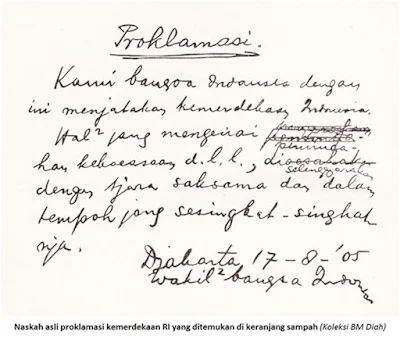 Proklamasi.
Kami bangsa Indonesia dengan
ini menjatakan kemerdekaan Indonesia.
Hal² jang mengenai
peminda-
han kekoeasaan d.l.l.,
diselenggarakan
dengan tjara saksama dan dalam
tempoh jang sesingkat-singkat
nja.
Djakarta 17-8-'05
Wakil² bangsa Indon
Naskah asli proklamasi kemerdekaan RI yang ditemukan di keranjang sampah (Koleksi BM Diah)